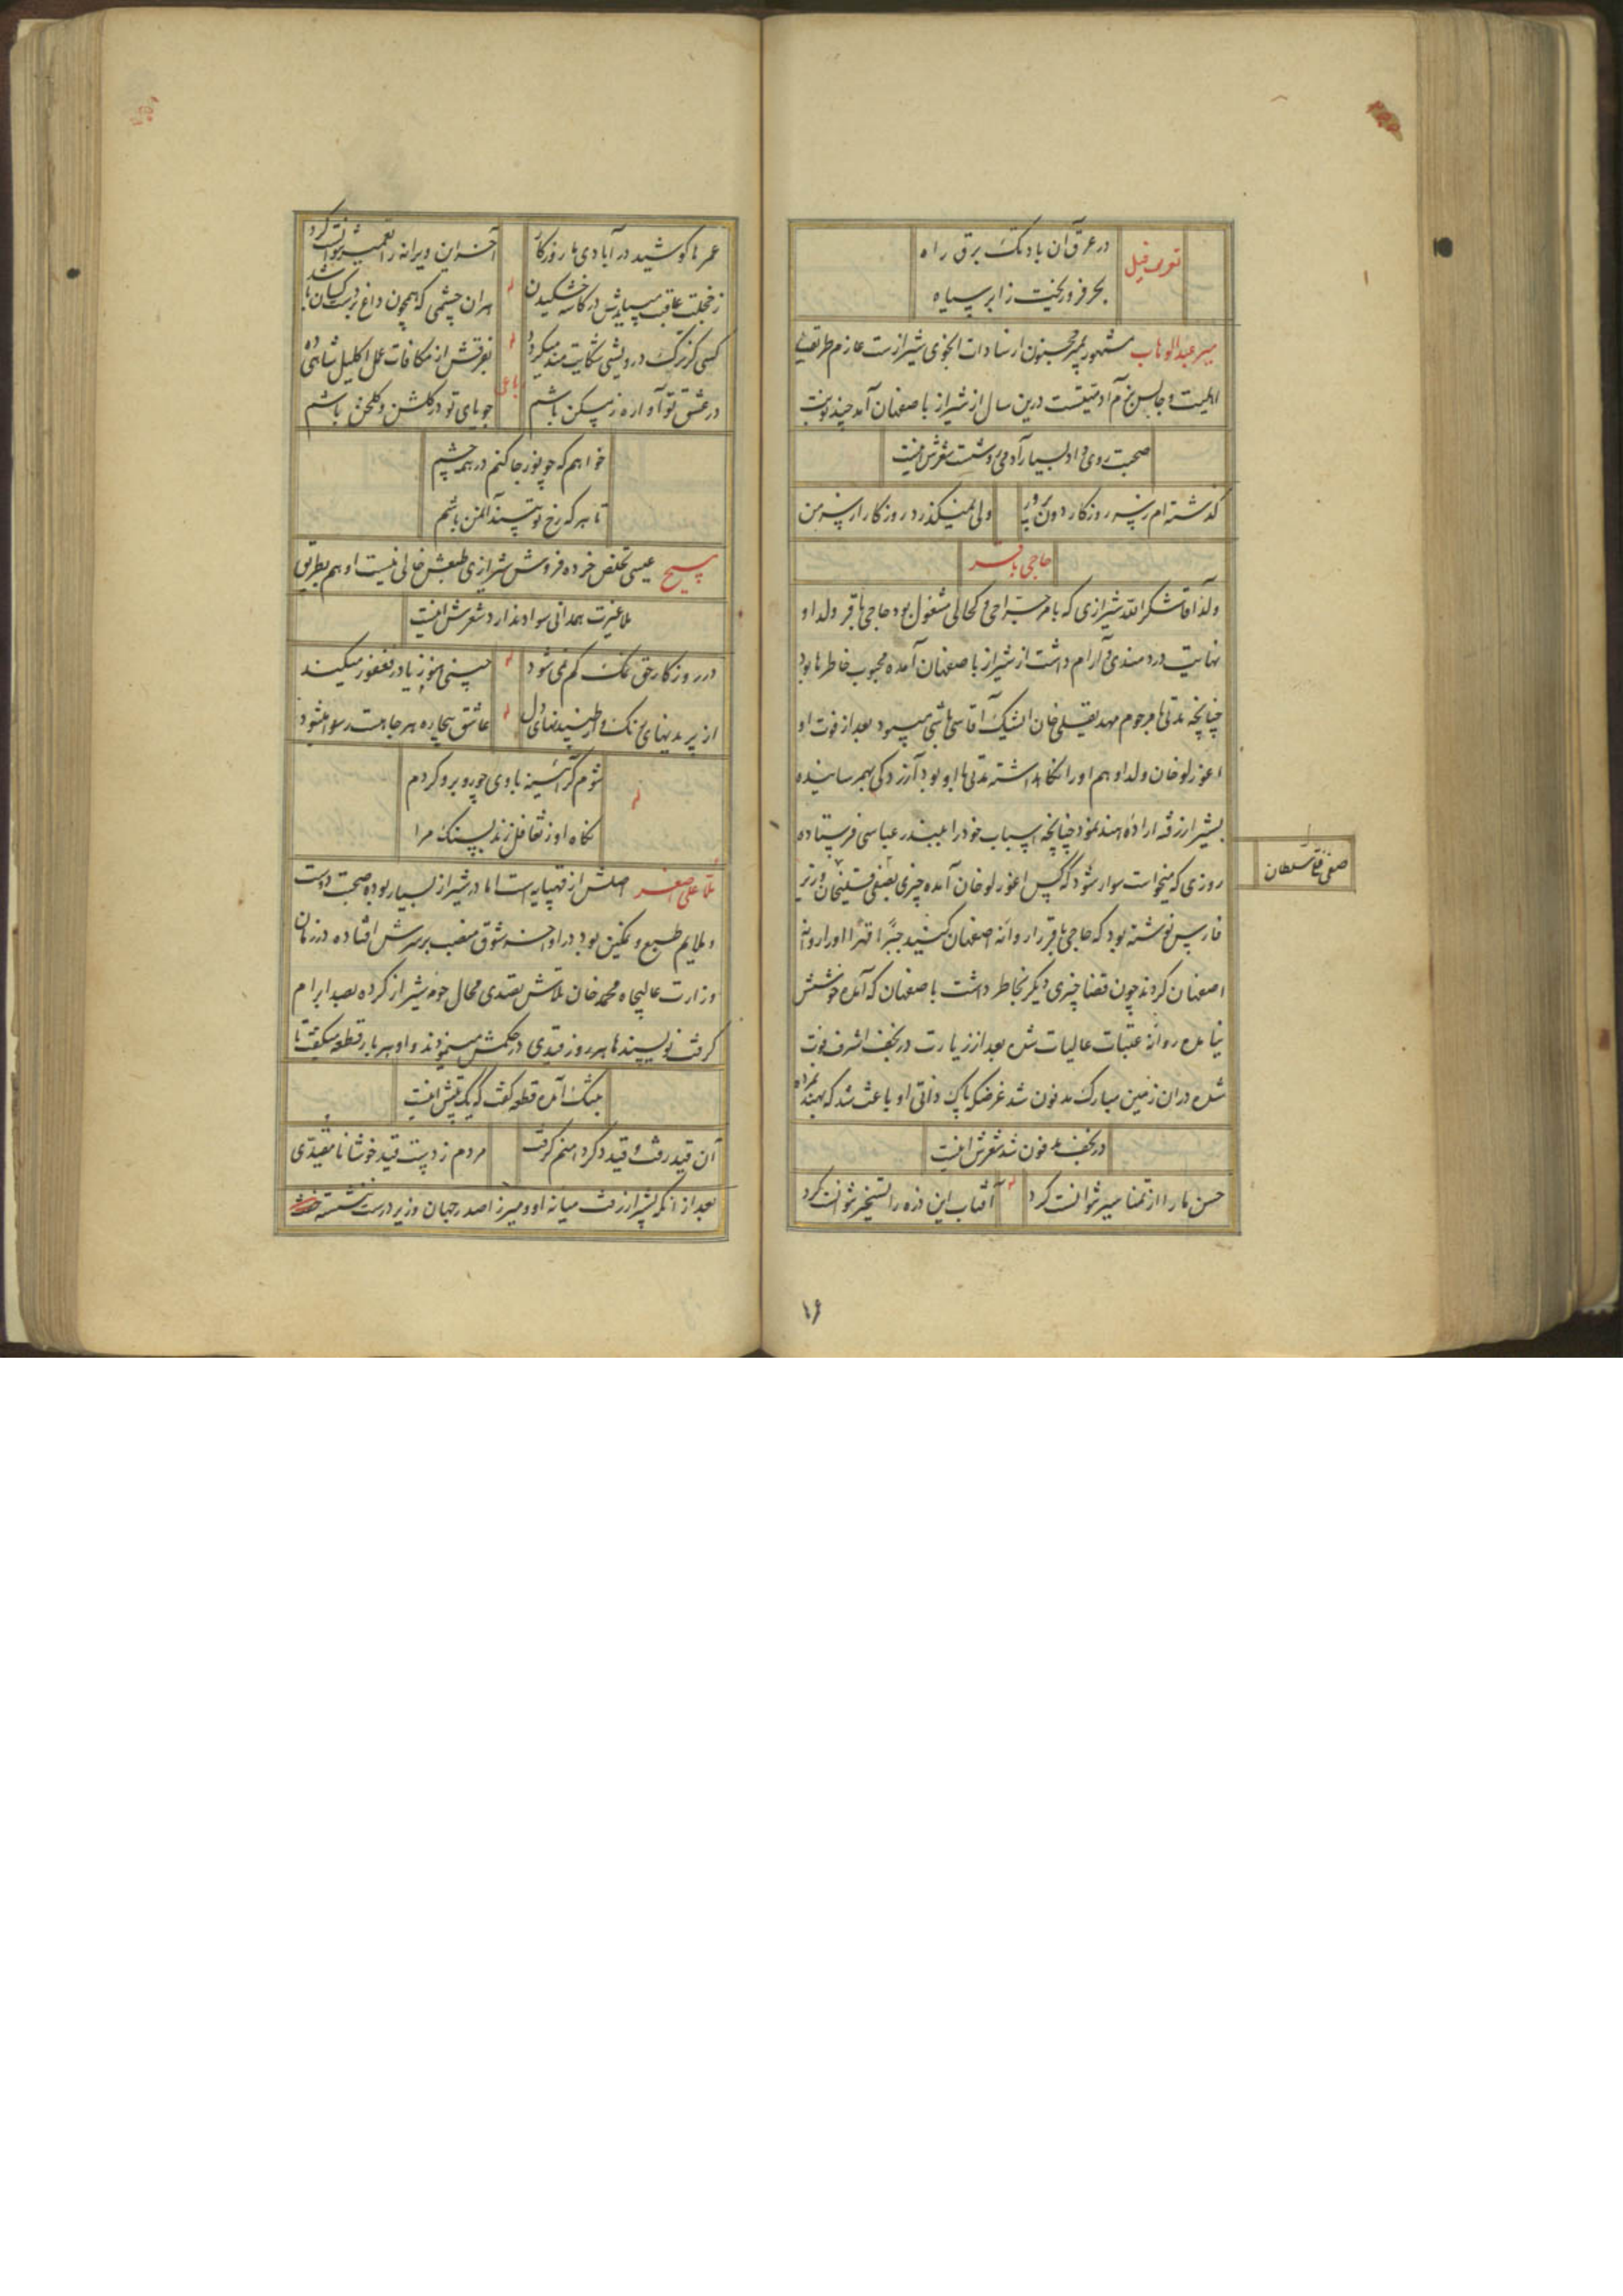 تعریف فیل
در عرق آن باد تک برق راه
بحر فرو ریخت ز ابر سیاه
میر عبدالوهاب مشهور بمیر مجنون از سادات انجوی شیرازست عازم طریقهٔ
اهلیت و جالس بزم آدمیتست درین سال از شیراز باصفهان آمد چند نوبت
صحبت روی داد بسیار آدمی روشست شعرش اینست
گذشته ام ز سر روزگار دون پرور
ولی نمیگذرد روزگار از سر من
حاجی باقر
ولد آقا شکرالله شیرازی که بامر جراحی و کحالی مشغول بود حاجی باقر ولد او
نهایت دردمندی و آرام داشت از شیراز باصفهان آمده محبوب خاطرها بود
چنانچه مدتی با مرحوم مهدیقلی خان ایشیک آقاسی باشی میبود بعد از فوت او
اغورلو خان ولد او هم او را نگاه داشته مدتی با او بود آزردگی بهمرسانیده
بشیراز رفته اراده هند نمود چنانچه اسباب خود را ببندر عباسی فرستاده
روزی که میخواست سوار شود که کس اغورلو خان آمده چیزی بصفی قلیخان وزیر
صفی قلی سلطان
فارس نوشته بود که حاجی باقر را روانه اصفهان کنید جبراً قهراً او را روانه
اصفهان کردند چون قضا چیزی دیگر بخاطر داشت باصفهان که آمده خوشش
نیامده روانه عتبات عالیات شده بعد از زیارت در نجف اشرف فوت
شده در آن زمین مبارک مدفون شد غرضکه پاک ذاتی او باعث شد که بهند نرفته
در نجف مدفون شد شعرش اینست
حسن ما را از تمنا سیر نتوانست کرد
له
آفتاب این ذره را تسخیر نتوانست کرد
۱۶
عمرها کوشید در آبادی ما روزگار
آخر این ویرانه را تعمیر نتوانست کرد
ز خجلت عاقبت میبایدش در کاسه خشکیدن
له
هر آن چشمی که همچون داغ بر دست کسان باشد
کسی کز ترک درویشی شکایت مند میگردد
له
بفرقش از مکافات عمل اکلیل شاهی ده
در عشق تو آواره ز مسکن باشم
رباعی
جویای تو در گلشن و گلخن باشم
خواهم که چو نور جا کنم در همه چشم
تا هر که رخ تو بیند آن من باشم
مسیح عیسی تخلص خرده فروش شیرازی طبعش خالی نیست او هم بطریق
ملا غیرت همدانی سواد ندارد شعرش اینست
در روزگار حق نمک کم نمی شود
له
چینی هنوز یاد ز فغفور میکند
از پریدنهای رنگ و از طپیدنهای دل
له
عاشق بیچاره هر جا هست رسوا میشود
له
شوم گر آئینه با وی چو روبرو گردم
نگاه او ز تغافل زند بسنگ مرا
ملا علی اصغر اصلش از قهپایه است اما در شیراز بسیار بوده صحبت دوست
و ملایم طبع و نمکین بود در اواخر شوق منصب بر سرش افتاده در زمان
وزارت عالیجاه محمد خان تلاش تصدی محال حومه شیراز کرده بصد ابرام
گرفت نویسندها هر روز قیدی در حکمش مینمودند و او هر بار قطعه میگفت تا
بتنگ آمده قطعه گفت که یک بیتش اینست
آن قید رفت و قید دگر دامنم گرفت
مردم ز دست قید خوشا نامقیدی
بعد از آنکه بشیراز رفت میانه او و میرزا صدر جهان وزیر درست ننشسته